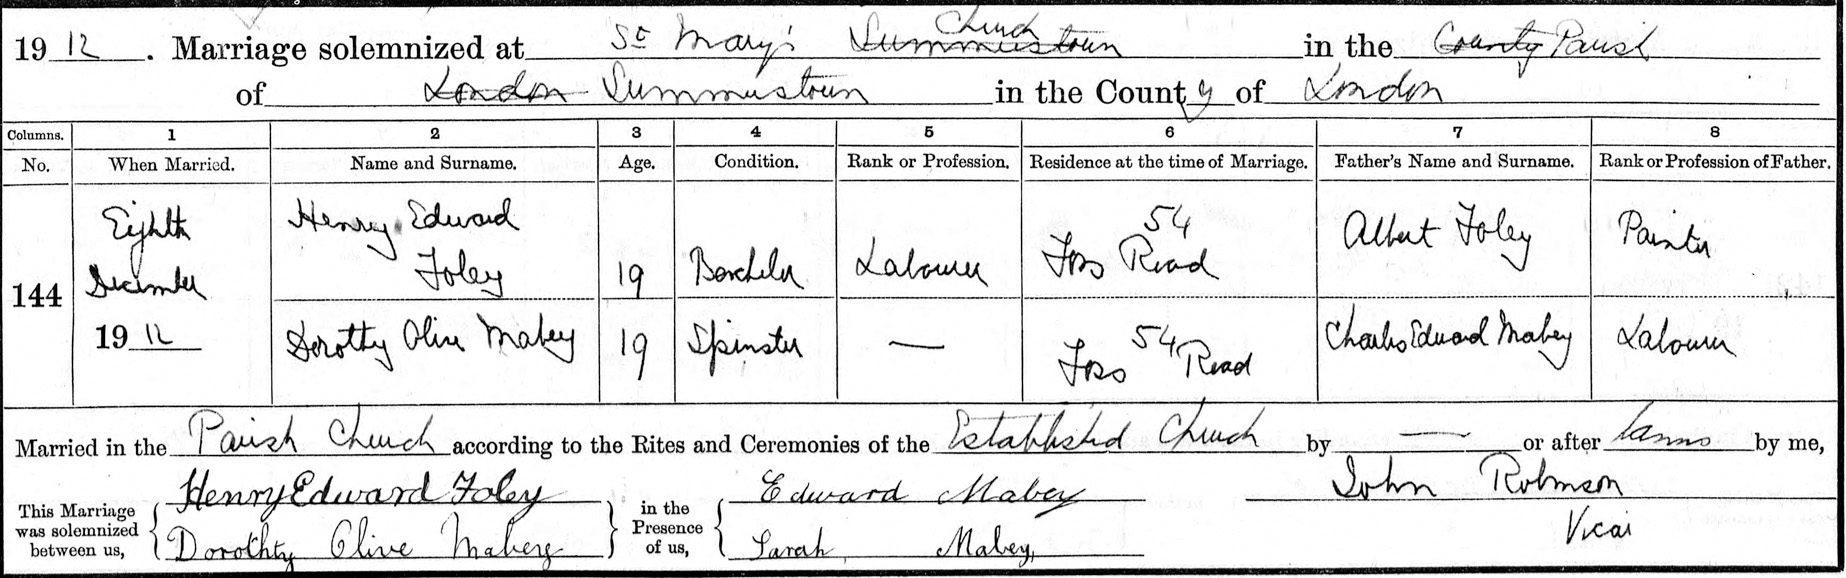 1912. Marriage solemnized at St Mary's Summerstown Church in the County Parish
of London Summerstown in the County of London
Columns. 1 2 3 4 5 6 7 8
No. When Married. Name and Surname. Age. Condition. Rank or Profession. Residence at the time of Marriage. Father's Name and Surname. Rank or Profession of Father.
144 Eighth December 1912 Henry Edward Foley 19 Bachelor Labourer 54 Foss Road Albert Foley Painter
Dorothy Olive Mabey 19 Spinster — 54 Foss Road Charles Edward Mabey Labourer
Married in the Parish Church according to the Rites and Ceremonies of the Established Church by — or after banns by me,
This Marriage was solemnized between us, Henry Edward Foley in the Presence of us, Edward Mabey John Robinson
Dorothty Olive Mabey Sarah Mabey, Vicar